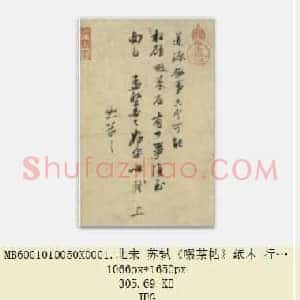 道源無事只今可能
枉顧啜茶否有少事須至
面白孟堅必已好安也軾上
恕草草
Shufaziliao.com
MB6001010050X0001.北宋 苏轼《啜茶帖》纸本 行…
1066px*1650px
305.69 KB
JPG